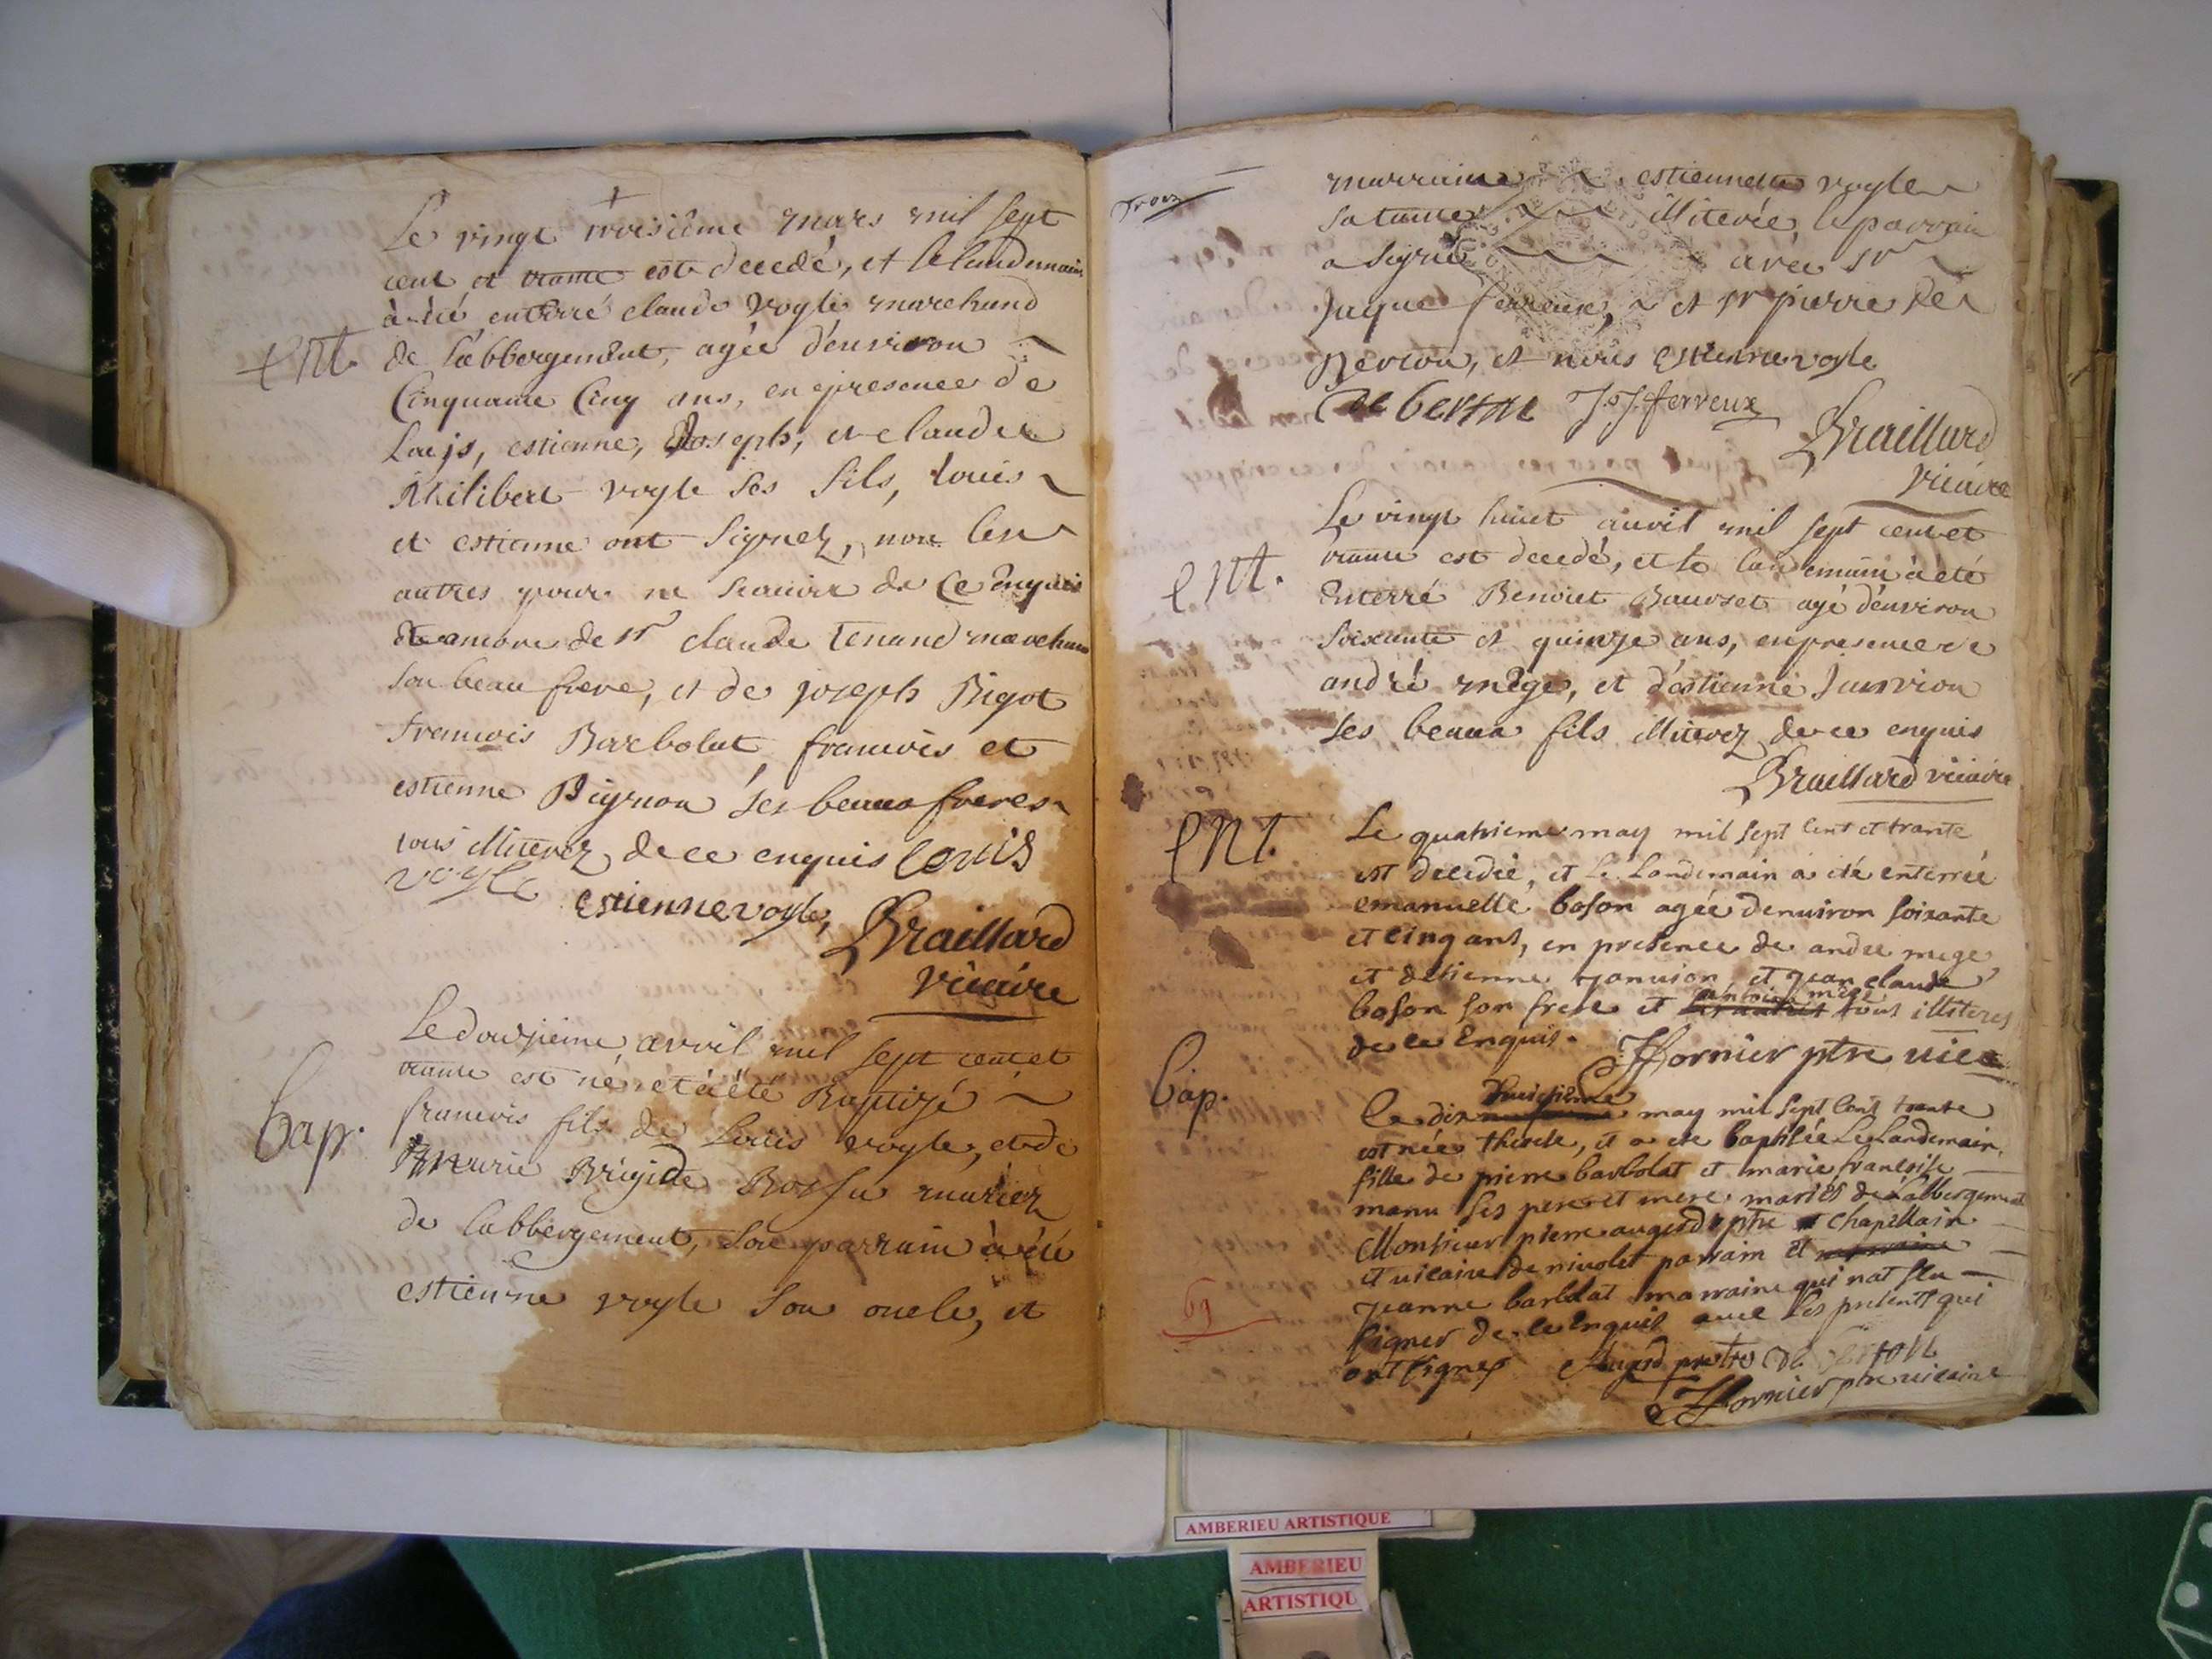 Le vingt troisiéme mars mil sept
cent et trante est decedé, et le landemain
à été enterré claude Vogle marchand
ent. de Labbergement, agée d'environ
Cinquante Cinq ans, en presence de
Louis, estienne, Joseph, et claude
Philibert vogle ses fils, Louis
et estienne ont signez, non les
autres pour ne scauoir de Ce enquis
encore de sr claude tenand marchand
son beau frere, et de joseph Bigot
francois Barbolat, francois et
estienne Pignon ses beaux freres
tous illiterez de ce enquis Louis
vogle estienne vogle,
Braillard
vicaire
Le douzieme avril mil sept cent et
trante est né et à été Baptizé
bap. francois fils de Louis vogle, et de
Marie Brigide Rossu mariez
de Labbergement, son parrain à été
estienne vogle son oncle, et
marraine estiennette vogle
sa tante illiterée, le parrain
a signé avec sr
Jaque ferreux, et sr pierre de
Berton, et nous estienne vogle
De berton J. J. ferreux
Braillard
vicaire
Le vingt huict auvril mil sept cent et
trante est decedé, et le landemain à été
ent. Enterré Benoiet Bauvset agé d'environ
soixante et quinze ans, en presence de
andré mège, et d'estienne Janvion
ses beaux fils illiterez de ce enquis
Braillard vicaire
ent. Le quatrieme may mil sept Cent et trante
est decedée, et Le Landemain a été enterrée
emanuelle boson agée denuiron soixante
et cinq ans, en presence de andre mege
et destienne Januion et Jean claude
boson son frere et antoine mege tous illiteres
de ce Enquis.
Hornier ptre vice
Bap. Le dix huictieme may mil sept Cent trante
est née therese, et a été baptisée Le Landemain
fille de pierre barbolat et marie francoise
manu ses pere et mere mariés de Labbergement
Monsieur pierre augerd ptre chapellain
et vicaire de nivolet parrain et marraine
Jeanne barbolat marraine qui nat sceu
signer de ce Enquis avec Les presents qui
ont signez Augerd pretre De berton
Hornier ptre vicaire
69
AMBERIEU ARTISTIQUE
AMBERIEU
ARTISTIQU